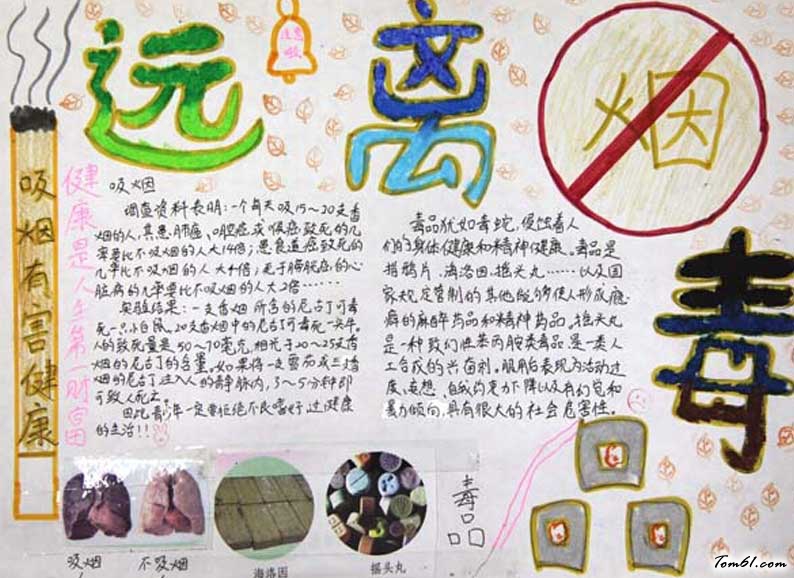 远离烟毒品
注意啦
吸烟有害健康
健康是人生第一财富
吸烟
调查资料表明:一个每天吸15~20支香
烟的人,其患肺癌、口腔癌或喉癌致死的几
率要比不吸烟的人大14倍;患食道癌致死的
几率要比不吸烟的人大4倍;死于膀胱癌的
心脏病的几率要比不吸烟的人大2倍……
实验结果:一支香烟所含的尼古丁可毒
死一只小白鼠,20支香烟中的尼古丁可毒死一头牛。
人的致死量是50~70毫克,相当于20~25支香
烟的尼古丁的含量。如果将一支雪茄或三支香
烟的尼古丁注入人的静脉内,3~5分钟即
可致人死亡。
因此青少年一定要拒绝不良嗜好过健康
的生活!!
毒品犹如毒蛇,侵蚀着人
们的身体健康和精神健康。毒品是
指鸦片、海洛因、摇头丸……以及国
家规定管制的其他能够使人形成瘾
癖的麻醉药品和精神药品。摇头丸
是一种致幻性苯丙胺类毒品,是一类人
工合成的兴奋剂。服用后表现为活动过
度、妄想、自我约束力下降以及有幻觉和
暴力倾向,具有很大的社会危害性。
吸烟
不吸烟
海洛因
摇头丸
毒品
Tom61.com